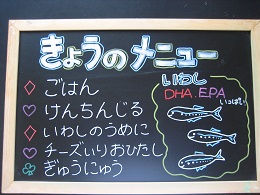 きょうのメニュー
ごはん
けんちんじる
いわしのうめに
チーズいりおひたし
ぎゅうにゅう
いわし
DHA.EPA
いっぱい